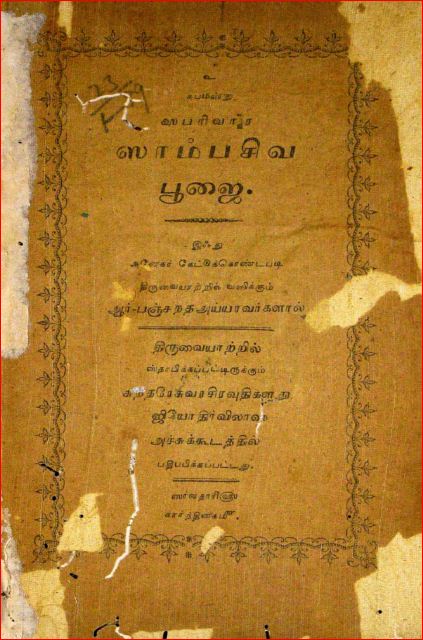 உ
சுபமஸ்து.
ஸபரிவார
ஸாம்பசிவ
பூஜை.
இஃது
அனேகர் கேட்டுக்கொண்டபடி
திருவையாற்றில் வஸிக்கும்
ஆர்-பஞ்சநதஅய்யரவர்களால்
திருவையாற்றில்
ஸ்தாபிக்கப்பட்டிருக்கும்
ஜியோதிர்விலாஸ
அச்சுக்கூடத்தில்
பதிப்பிக்கப்பட்டது.